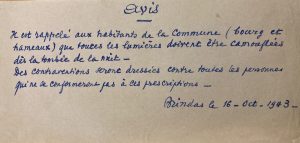 Avis
Il est rappelé aux habitants de la Commune (bourg et
hameaux) que toutes les lumières doivent être camouflées
dès la tombée de la nuit -
Des contraventions seront dressées contre toutes les personnes
qui ne se conformeront pas à ces prescriptions -
Brindas le 16 - Oct - 1943 -